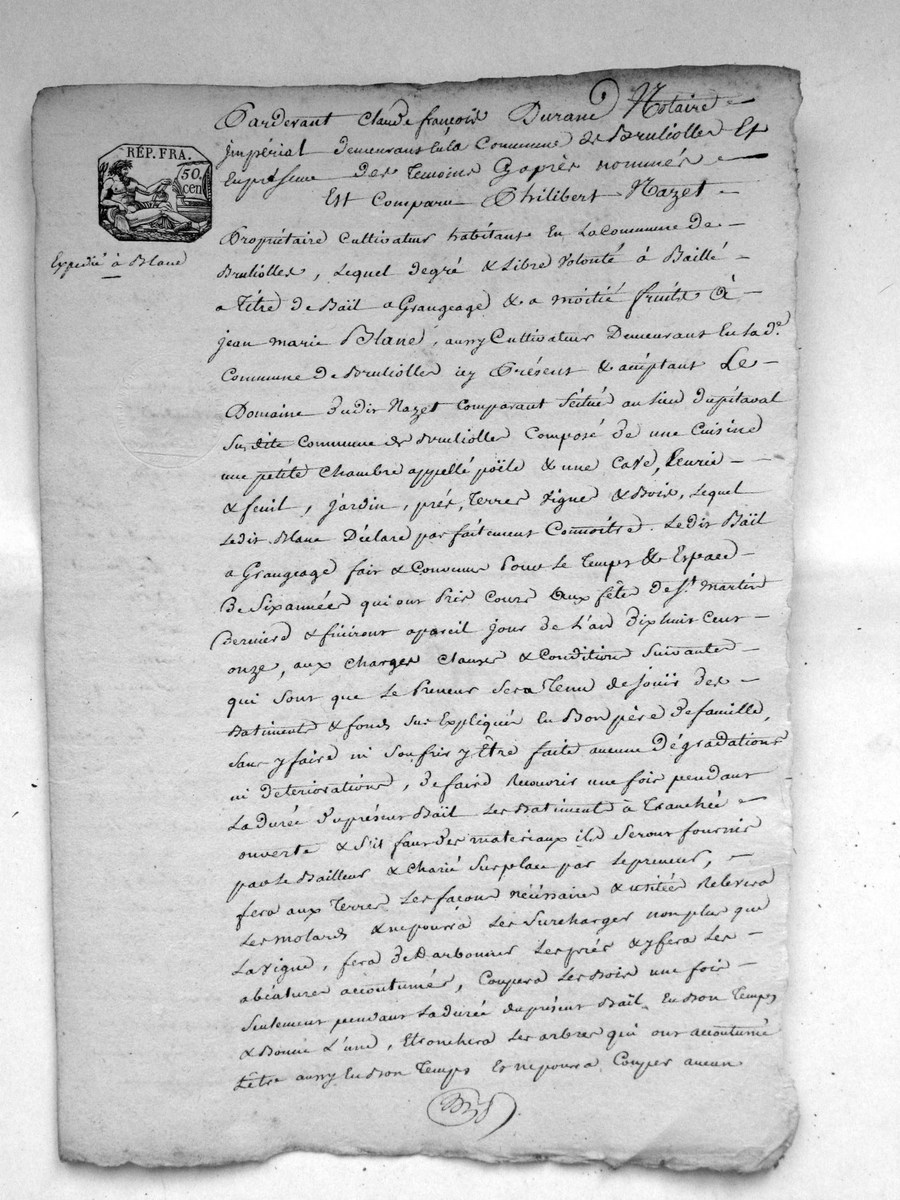 RÉP. FRA.
50. cen
Expedié à Blanc
Pardevant Claude françois Durand Notaire
jmpérial demeurant en la Commune de Bruliolles Et
En présence des Temoins Cy après nommés
Est Comparu Philibert Nazet
Propriétaire Cultivateur habitant En La Commune de
Bruliolles, Lequel de gré & Libre Volonté à Baillé
a Titre de Bail a Grangeage & a moitié fruits à
jean marie Blanc, aussy Cultivateur Demeurant En la d.e
Commune de Brulioller icy Présent & acceptant Le
Domaine dudit Nazet Comparant Scitué au lieu du pitaval
Susdite Commune de Brulioller Composé de une Cuisine
une petite Chambre appellé poële & une Cave, Ecurie
& fenil, jardin, prés, Terres Vigne & Bois, Lequel
Ledit Blanc Déclare parfaitement Connoitre. Ledit Bail
a Grangeage fait & Convenu Pour le Temps & Espace
De Six années qui ont Pris Cours aux fête de St. Martin
Dernier & finiront a pareil jour de L'an dix huit Cent
onze, aux Charges Clauses & Condition Suivantes
qui Sont que Le Preneur Sera Tenu de jouir des
Batiments & fonds Sus Expliqués En Bon père de famille,
Sans y faire ni Souffrir y Être faite aucune Dégradations
ni Deteriorations, de faire Recouvrir une fois pendant
La durée du présent Bail Les Batiment à Tranchée
ouverte & S'il faut des materiaux ils Seront fournis
par Le Bailleur & Charié Sur place par Le preneur,
fera aux Terres Les façons nécéssaire & usitée Relevera
Les molards & ne pourra Les Surcharger non plus que
La vigne, fera De Darbonner Les prés & y fera Les
abéatures accoutumés, Coupera Les Bois une fois
Seulement pendant La durée du présent Bail En Bon Temps
& Bonne Lune, Etronchera Les arbres qui ont accoutumé
L'etre aussy En Bon Temps Et ne pourra Couper aucun